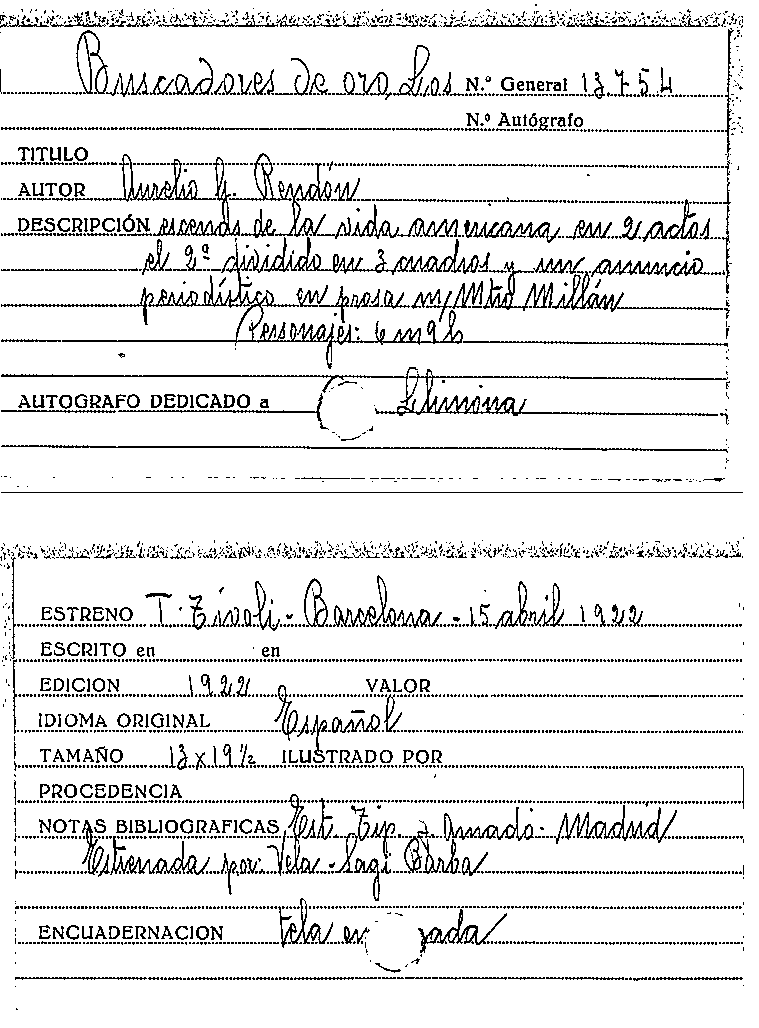 Buscadores de oro, Los N.º General 13.754
N.º Autógrafo
TITULO
AUTOR Aurelio G. Rendón
DESCRIPCIÓN escenas de la vida americana en 2 actos
el 2º dividido en 3 cuadros y un anuncio
periodístico en prosa m/ Mtro Millán
Personajes: 6 m 9 h
AUTOGRAFO DEDICADO a
ESTRENO T. Tívoli - Barcelona - 15 abril 1922
ESCRITO en en
EDICION 1922 VALOR
IDIOMA ORIGINAL Español
TAMAÑO 13 x 19 ½ ILUSTRADO POR
PROCEDENCIA
NOTAS BIBLIOGRAFICAS Est. Tip. J. Amado - Madrid
Estrenada por: Vela - Sagi Barba
ENCUADERNACION tela